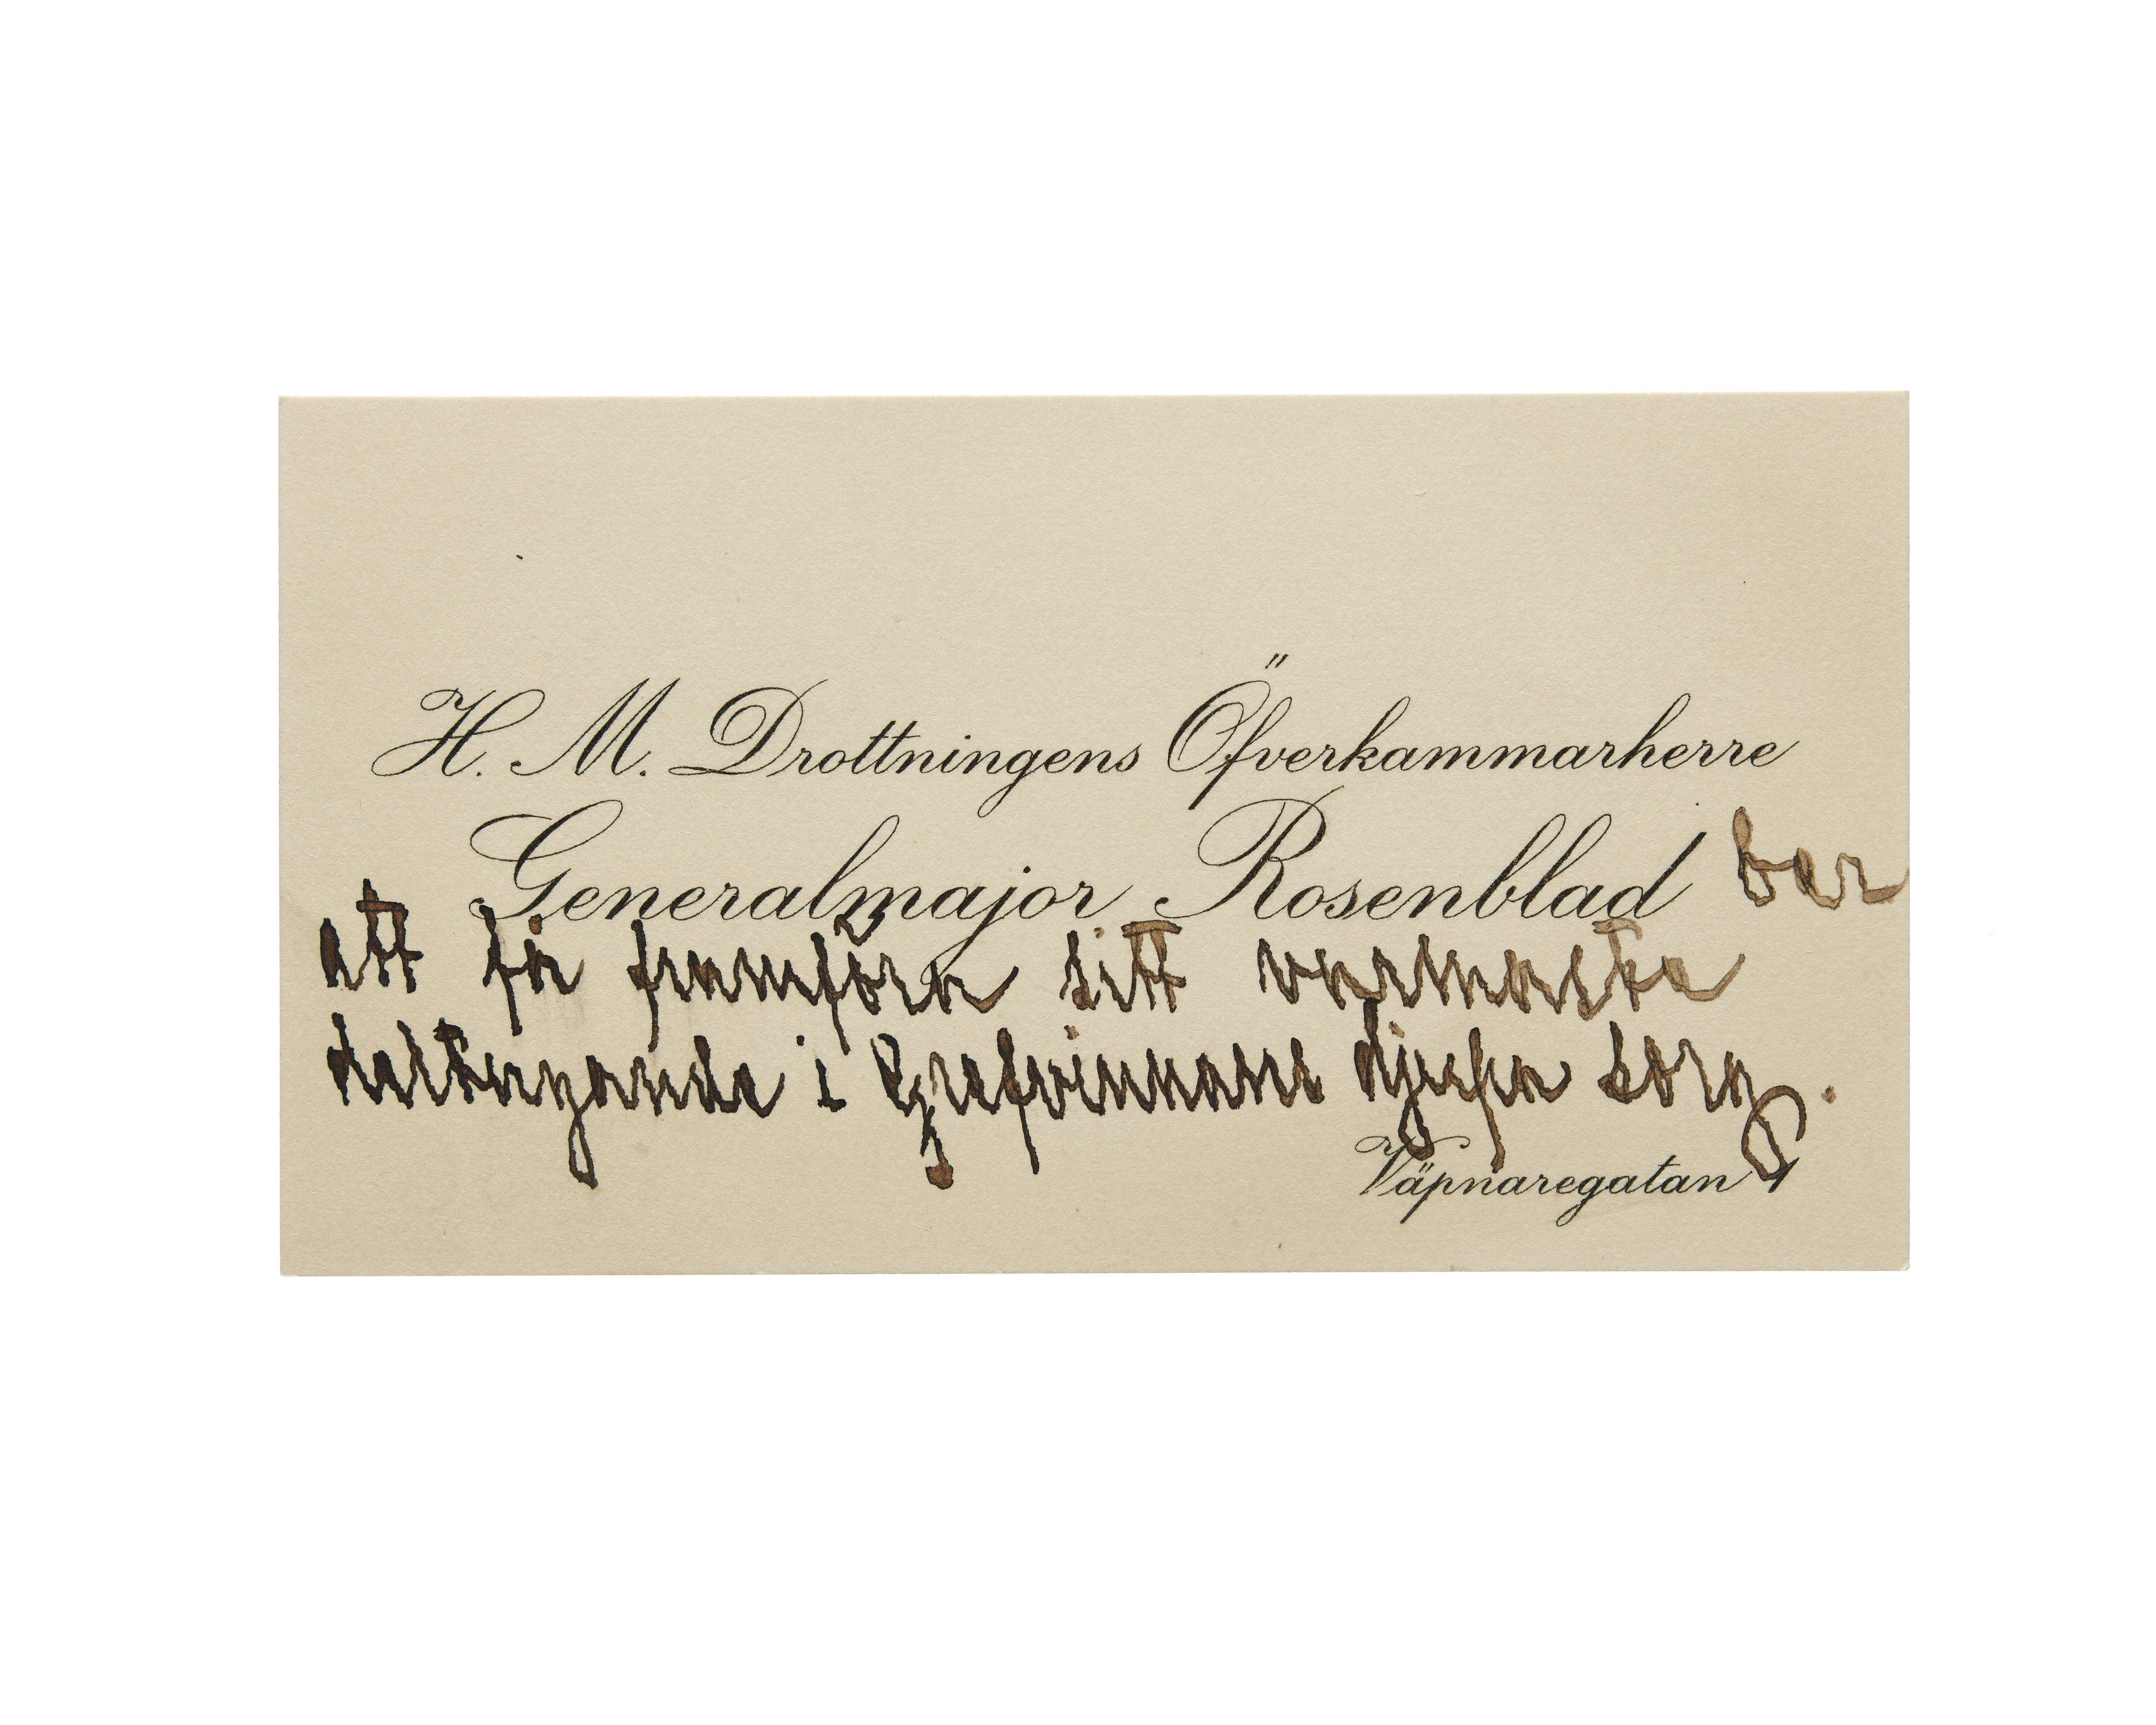 H. M. Drottningens Öfverkammarherre
Generalmajor Rosenblad ber
att få framföra sitt varmaste
deltagande i Grefvinnans djupa sorg.
Väpnaregatan